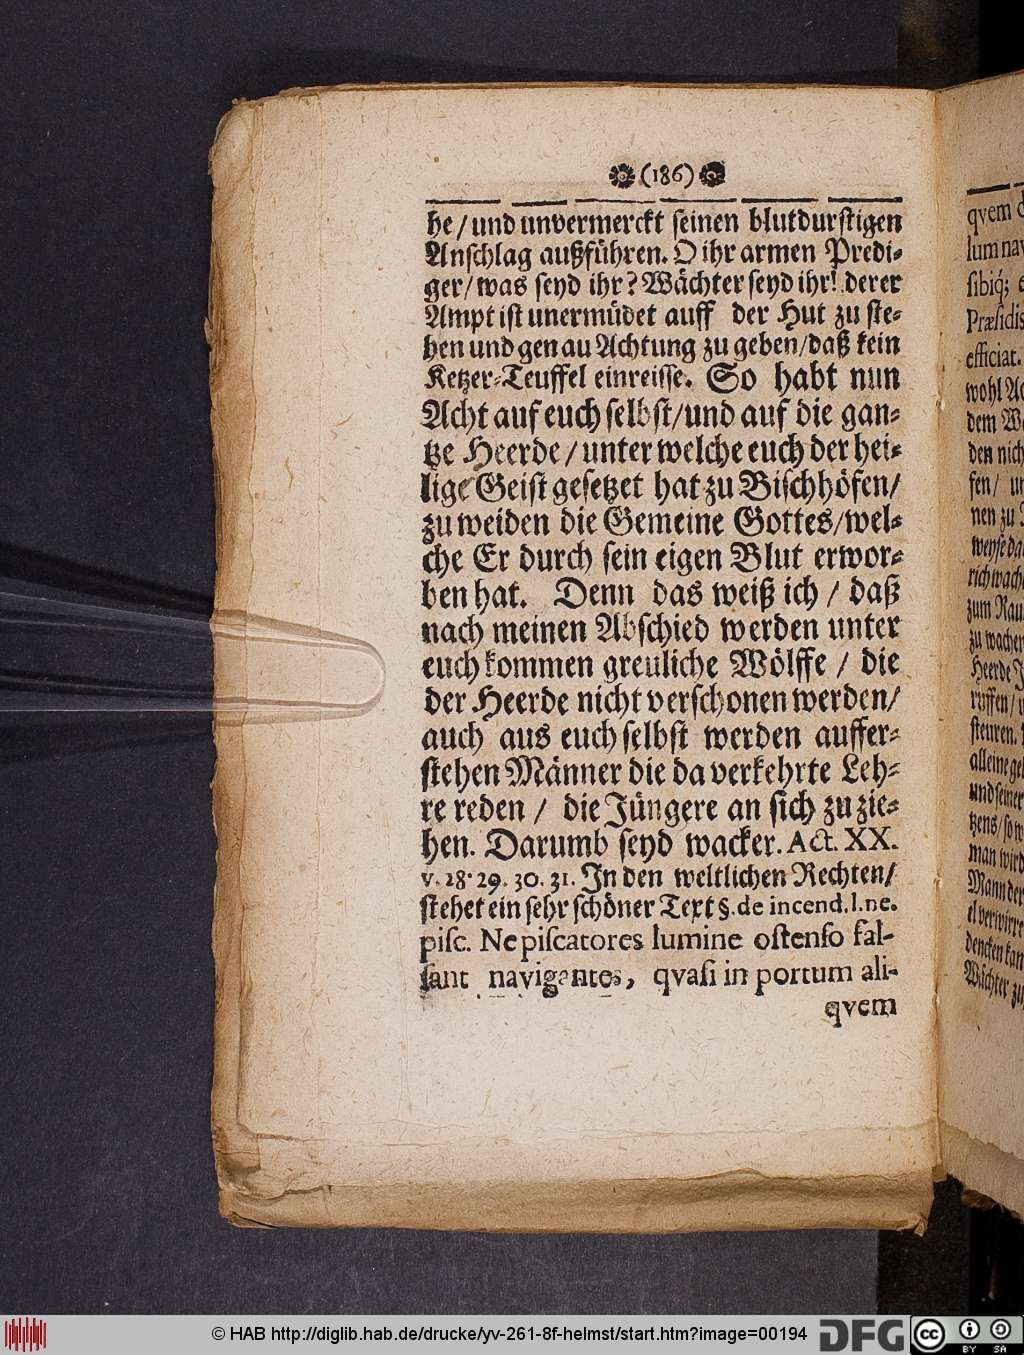 (186)
he/ und unvermerckt seinen blutdurstigen
Anschlag außführen. O ihr armen Predi-
ger/ was seyd ihr? Wächter seyd ihr! derer
Ampt ist unermüdet auff der Hut zu ste-
hen und genau Achtung zu geben/ daß kein
Ketzer-Teuffel einreisse. So habt nun
Acht auf euch selbst/ und auf die gan-
tze Heerde/ unter welche euch der hei-
lige Geist gesetzet hat zu Bischhöfen/
zu weiden die Gemeine Gottes/ wel-
che Er durch sein eigen Blut erwor-
ben hat. Denn das weiß ich/ daß
nach meinen Abschied werden unter
euch kommen greuliche Wölffe/ die
der Heerde nicht verschonen werden/
auch aus euch selbst werden auffer-
stehen Männer die da verkehrte Leh-
re reden/ die Jüngere an sich zu zie-
hen. Darumb seyd wacker. Act. XX.
v. 28. 29. 30. 31. In den weltlichen Rechten/
stehet ein sehr schöner Text §. de incend. l. ne.
pisc. Ne piscatores lumine ostenso fal-
sant navigantes, qvasi in portum ali-
qvem
qvem
lum
sibiq́;
Præsidis
efficiat.
wohl
dem
den
fen/
nen zu
weyse
zum
zu wachen
Heerde
ruffen/
steuren.
alleine
und seiner
tzens/
man wird
Mann der
el verwirre
dencken kan
Wächter zu
© HAB http://diglib.hab.de/drucke/yv-261-8f-helmst/start.htm?image=00194
DFG
cc
BY SA